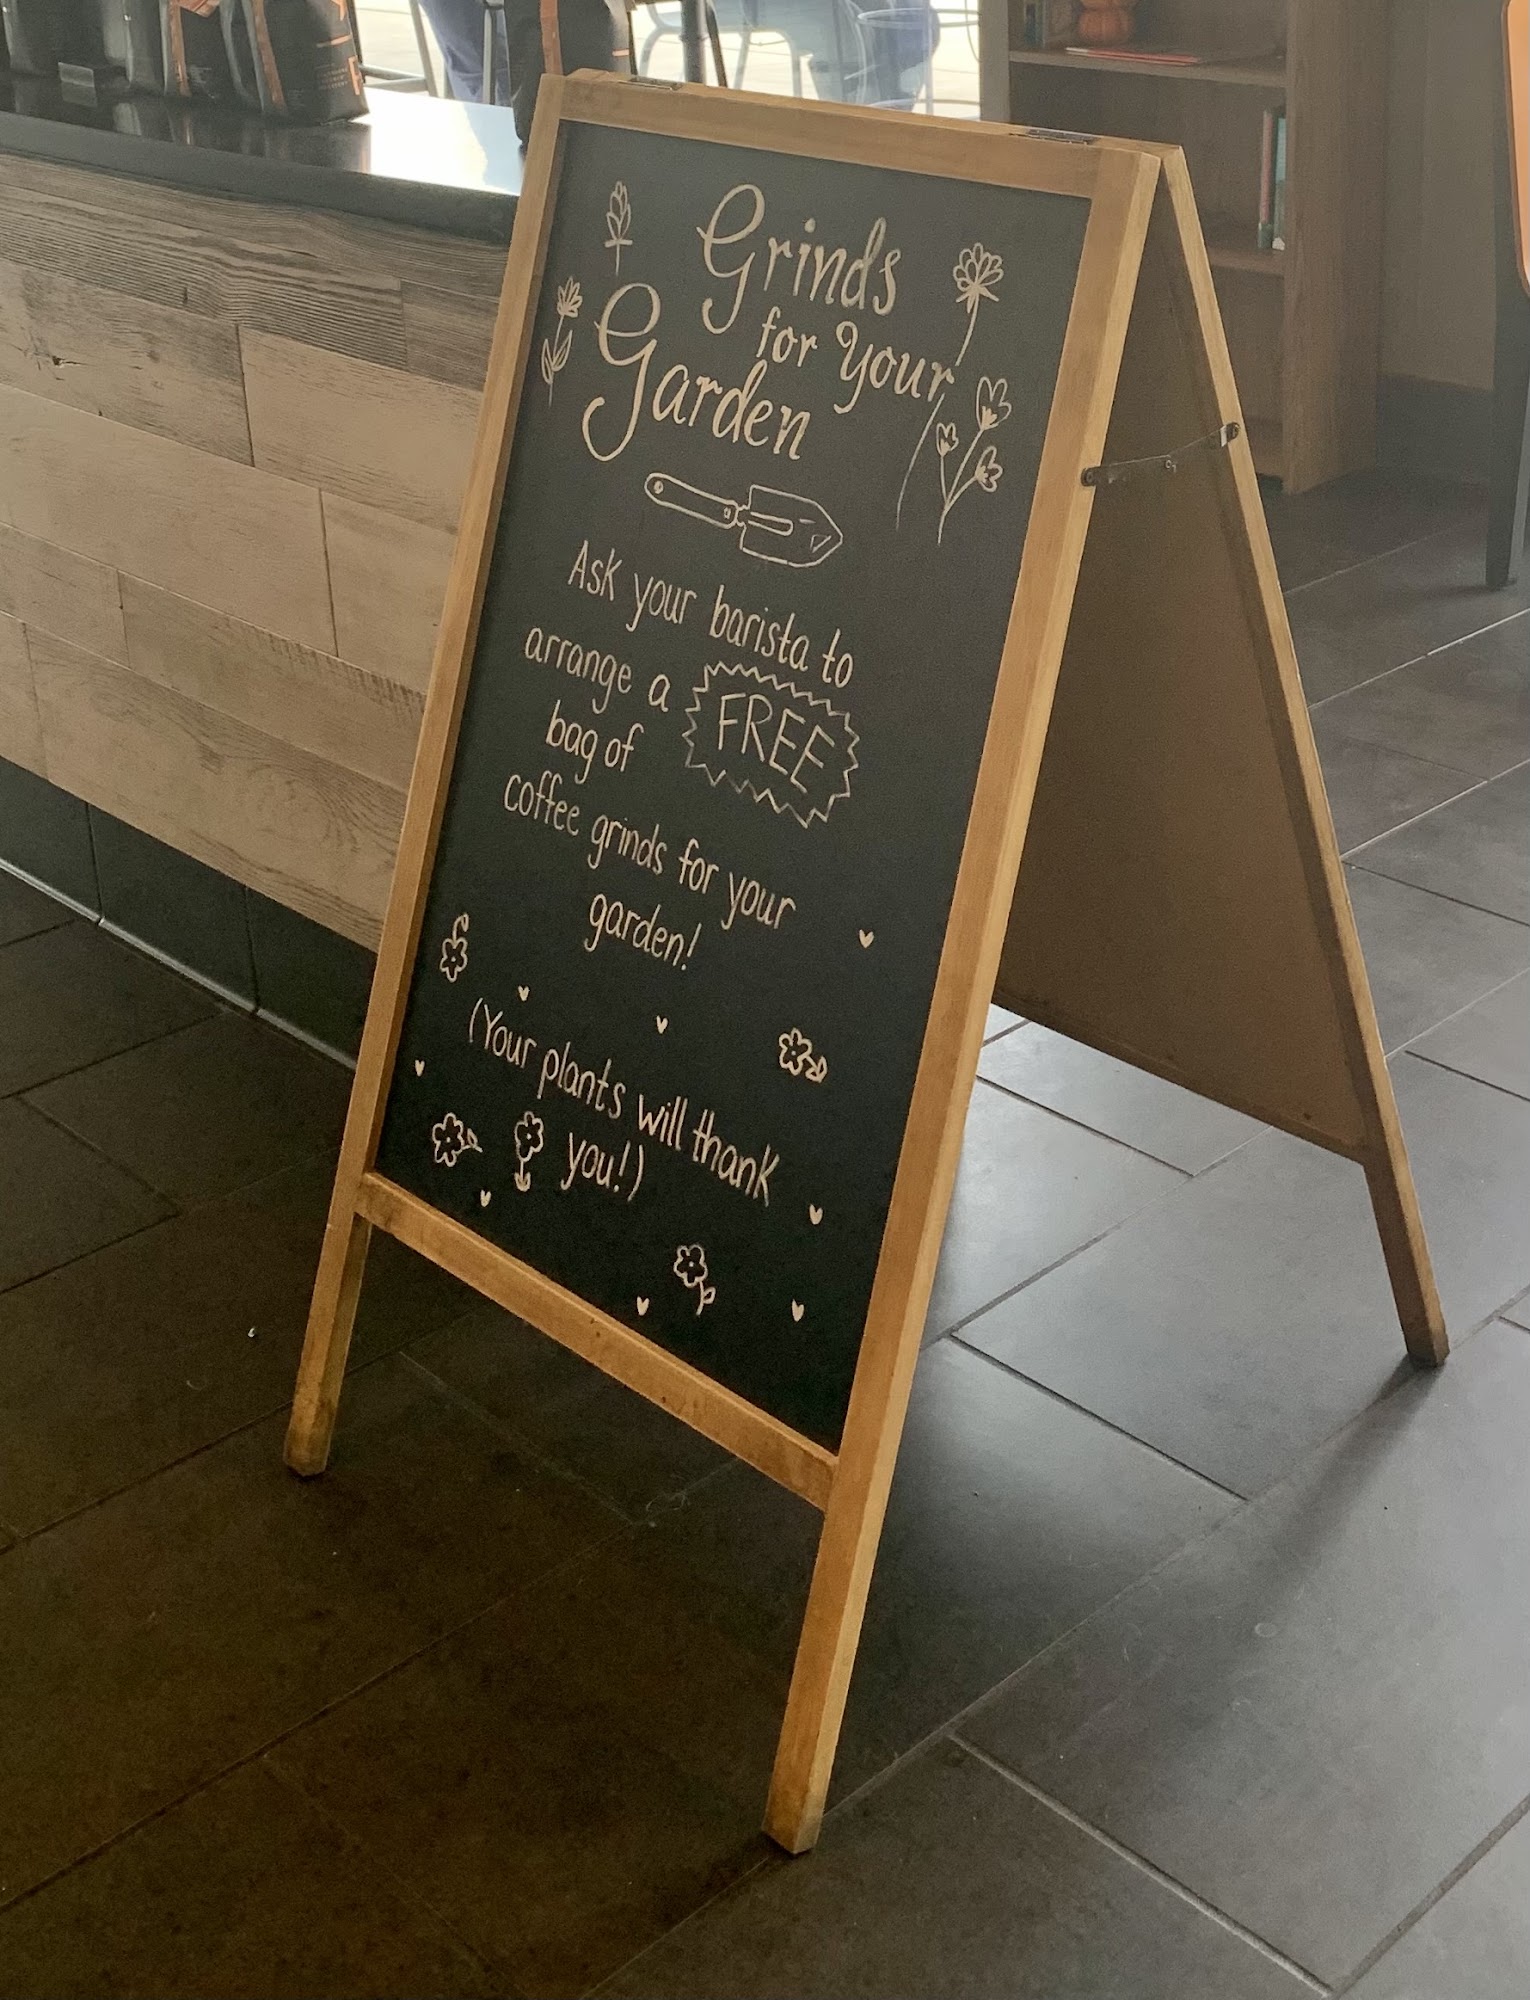 Grinds
for Your
Garden
Ask your barista to
arrange a FREE
bag of
coffee grinds for your
garden!
(Your plants will thank
you!)